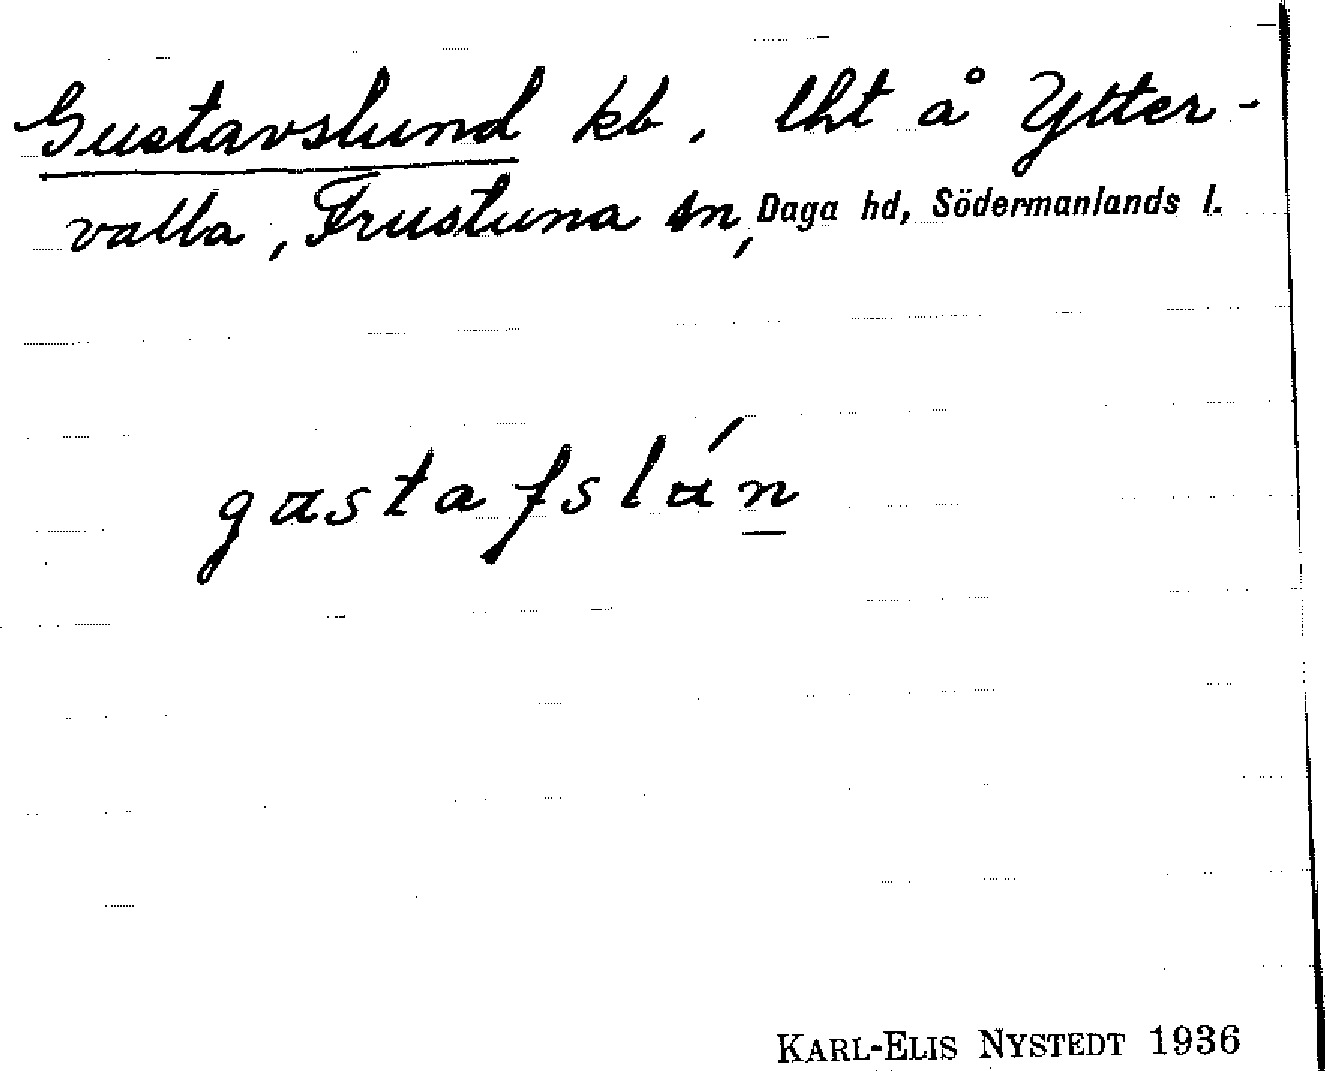 Gustavslund kb. lht å Ytter-
valla, Frustuna sn, Daga hd, Södermanlands l.
gustafslún
KARL-ELIS NYSTEDT 1936